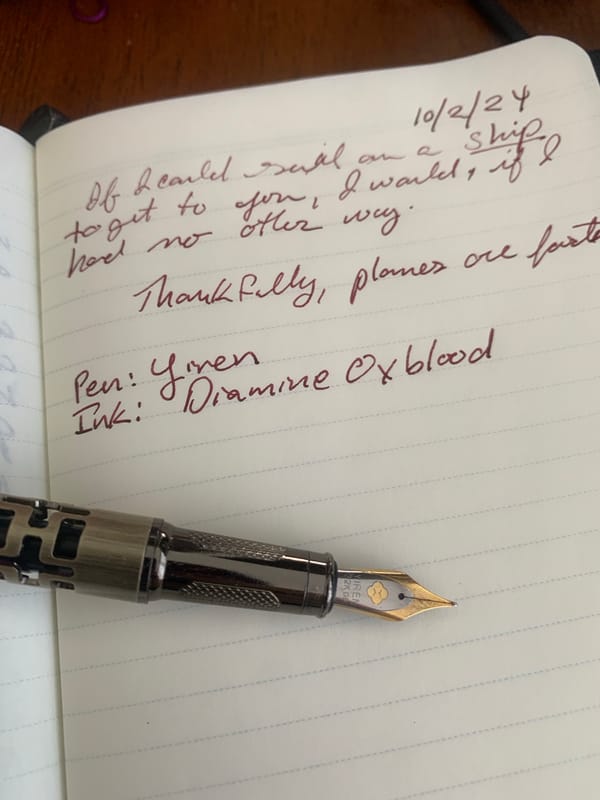 10/2/24
If I could sail on a ship
to get to you, I would, if I
had no other way.
Thankfully, planes are faste
Pen: Yiren
Ink: Diamine Oxblood